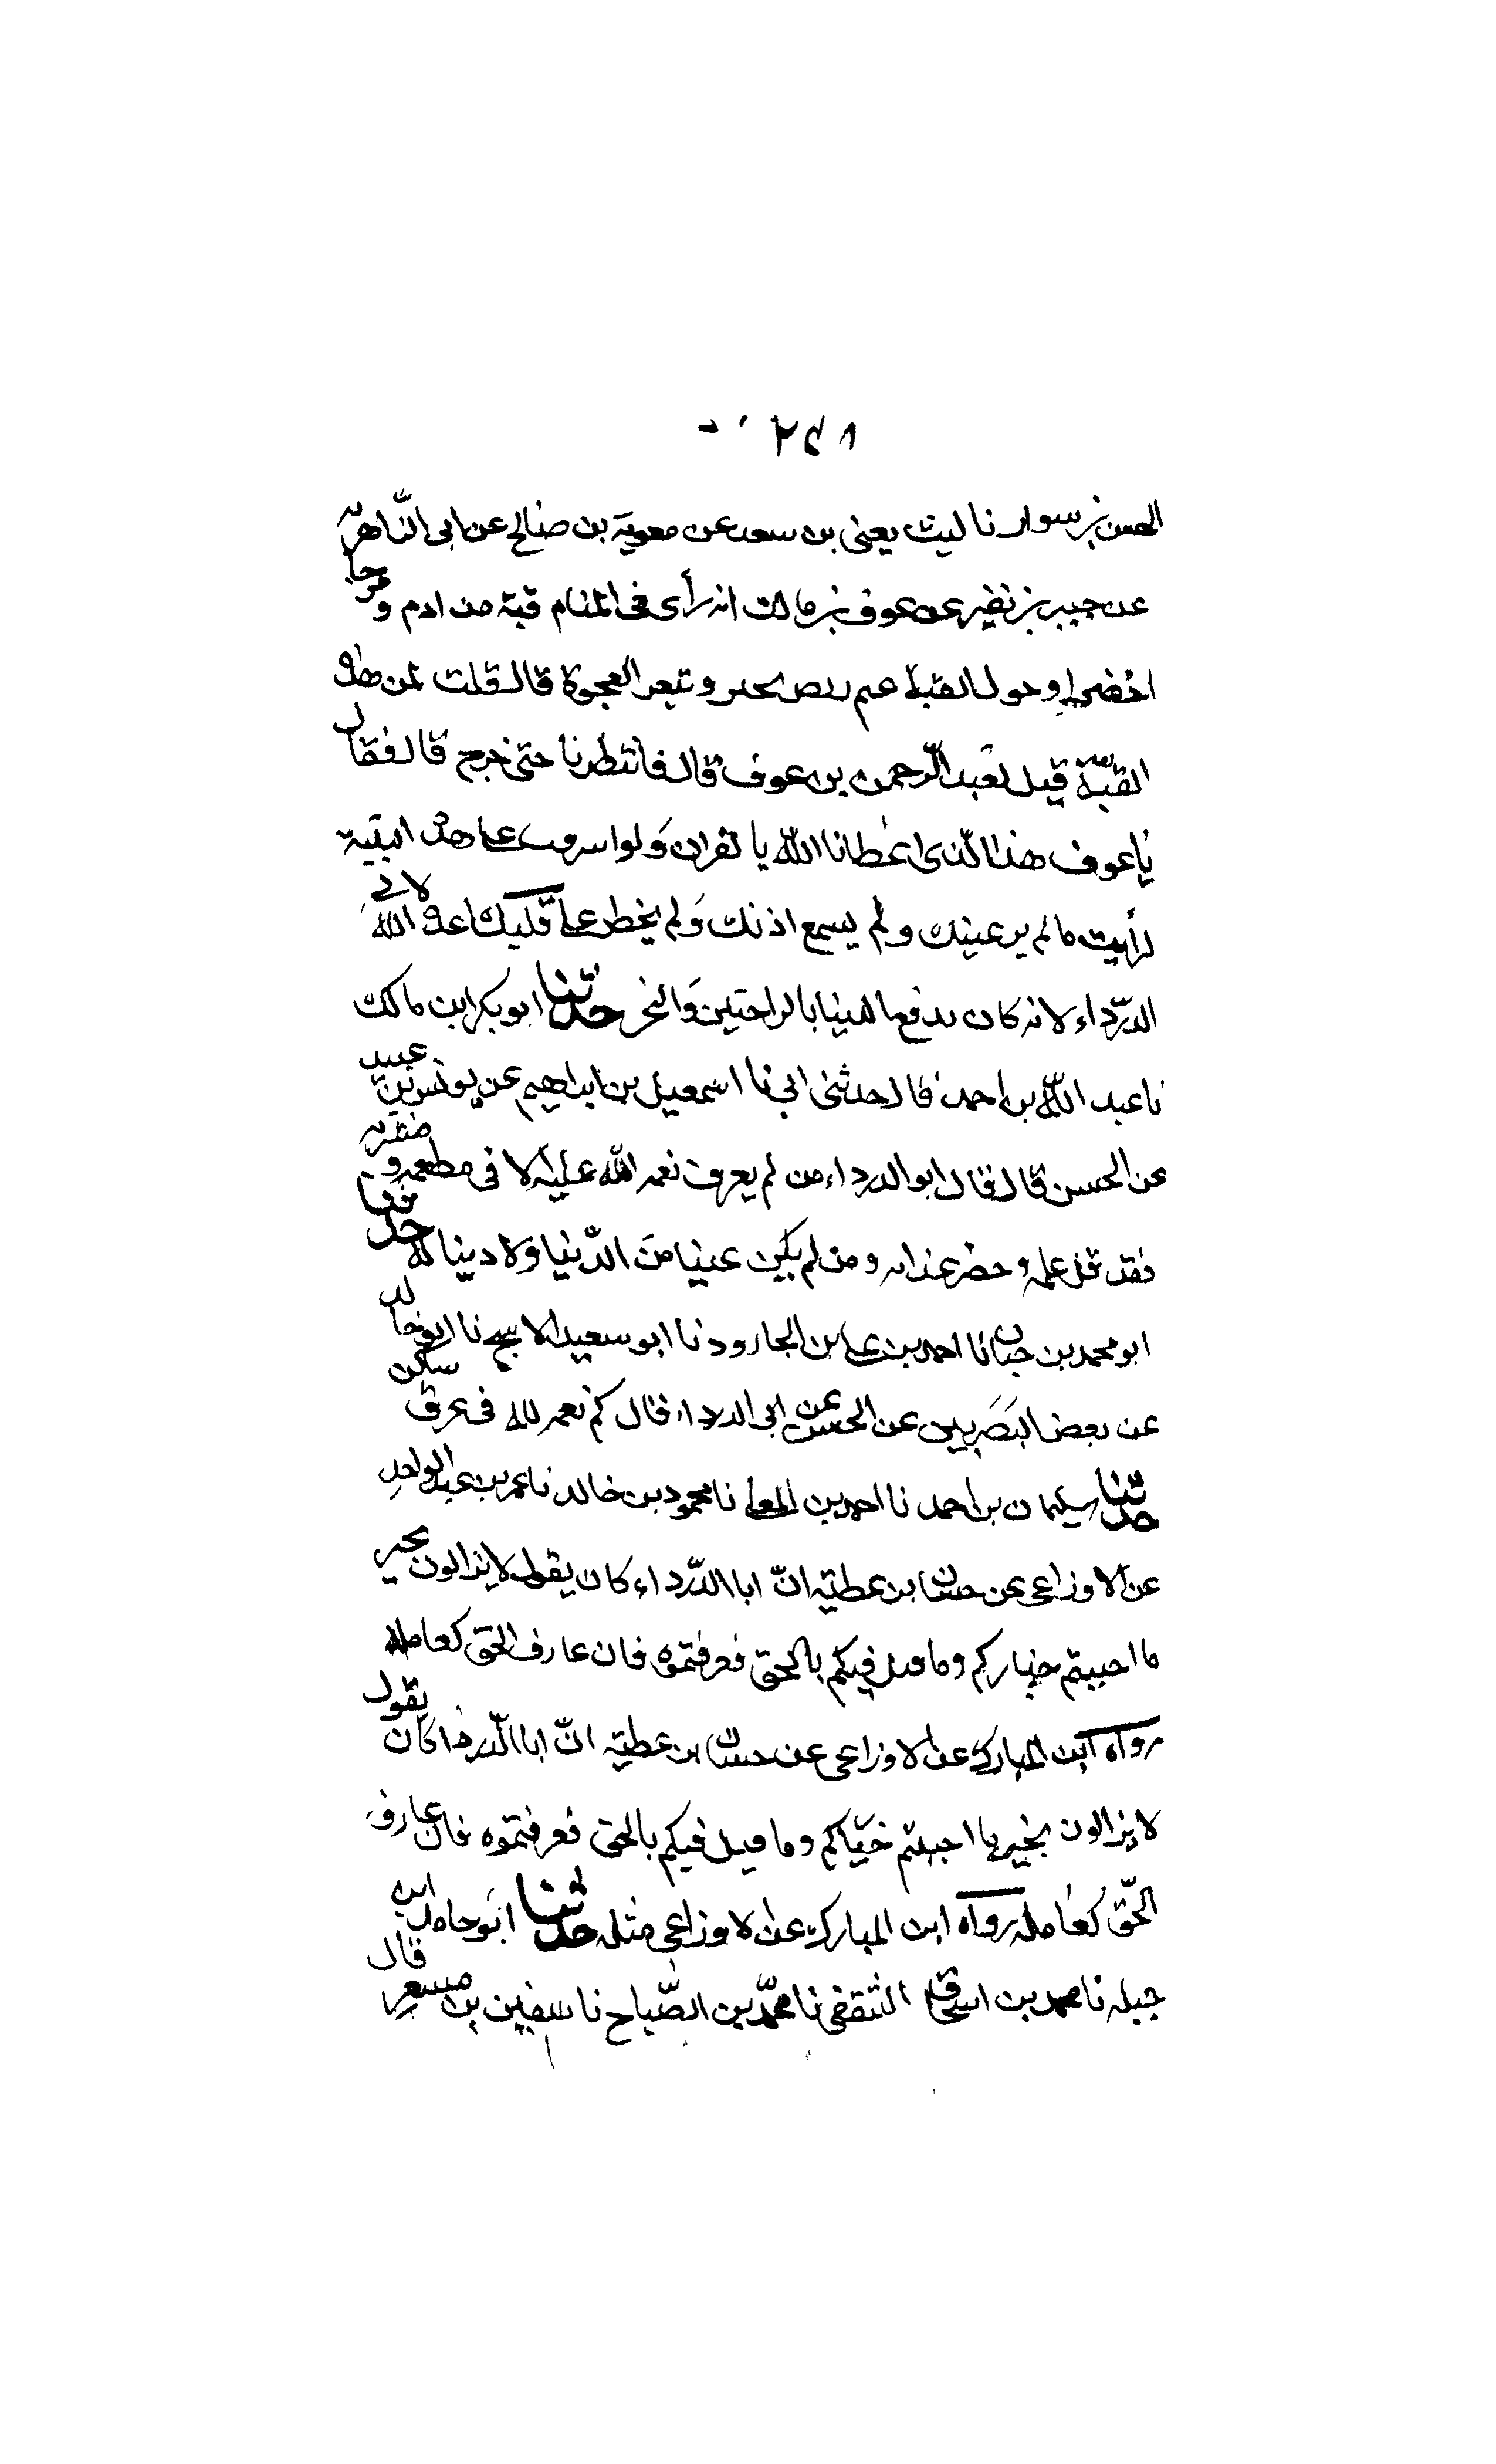 ٢٤٨
الحسن بن سوار نا ليث يعنى بن سعد عن معوية بن صالح عن ابى الزاهرية
عن جبير بن نفير عن عوف بن مالك انه رأى فى المنام قبة من ادم ومرجا
اخضر وحول القبة غنم ربض تجتر وتبعر العجوة قال قلت لمن هذه
القبة قيل لعبد الرحمن بن عوف قال فانتظرنا حتى خرج قال فقال
يا عوف هذا الذى اعطانا الله بالقران ولو اسرفت على هذه الثنية
لرأيت ما لم ير عينك ولم يسمع اذنك ولم يخطر على قلبك اعده الله لابى
الدرداء لانه كان يدفع الدنيا بالراحتين والنحر حدثنا ابو بكر ابن مالك
نا عبد الله بن احمد قال حدثنى ابى نا اسمعيل بن ابراهيم عن يونس بن عبيد
عن الحسن قال قال ابو الدرداء من لم يعرف نعمه الله عليه الا فى مطعمه و مشربه
فقد قل علمه وحضر عذابه ومن لم يكن غنيا من الدنيا ولا دنيا له حدثنا
ابو محمد بن حيان نا احمد بن على بن الجارود نا ابو سعيد الاشج نا ابو خالد
عن بعض البصريين عن الحسن عن ابى الدرداء قال كم نعمه لله فى عرق ساكن
حدثنا سليمان بن احمد نا احمد بن المعلى نا محمود بن خالد نا عمر بن عبد الواحد
عن الاوزاعى عن حسان بن عطية انّ ابا الدّرداء كان يقول لا يزالون بخير
ما احببتم خياركم وما قيل فيكم بالحق فعرفتموه فان عارف الحق كعامله
رواه ابن المبارك عن الاوزاعى عن حسان بن عطية انّ ابا الدردا كان يقول
لا يزالون بخير ما احببتم خياركم وما قيل فيكم بالحق فعرفتموه فان عارف
الحق كعامله رواه ابن المبارك عن الاوزاعى مثله حدثنا ابو حامد ابن
جبله نا محمد بن اسحاق الثقفى نا محمّد بن الصّباح نا سفين بن مسعر قال